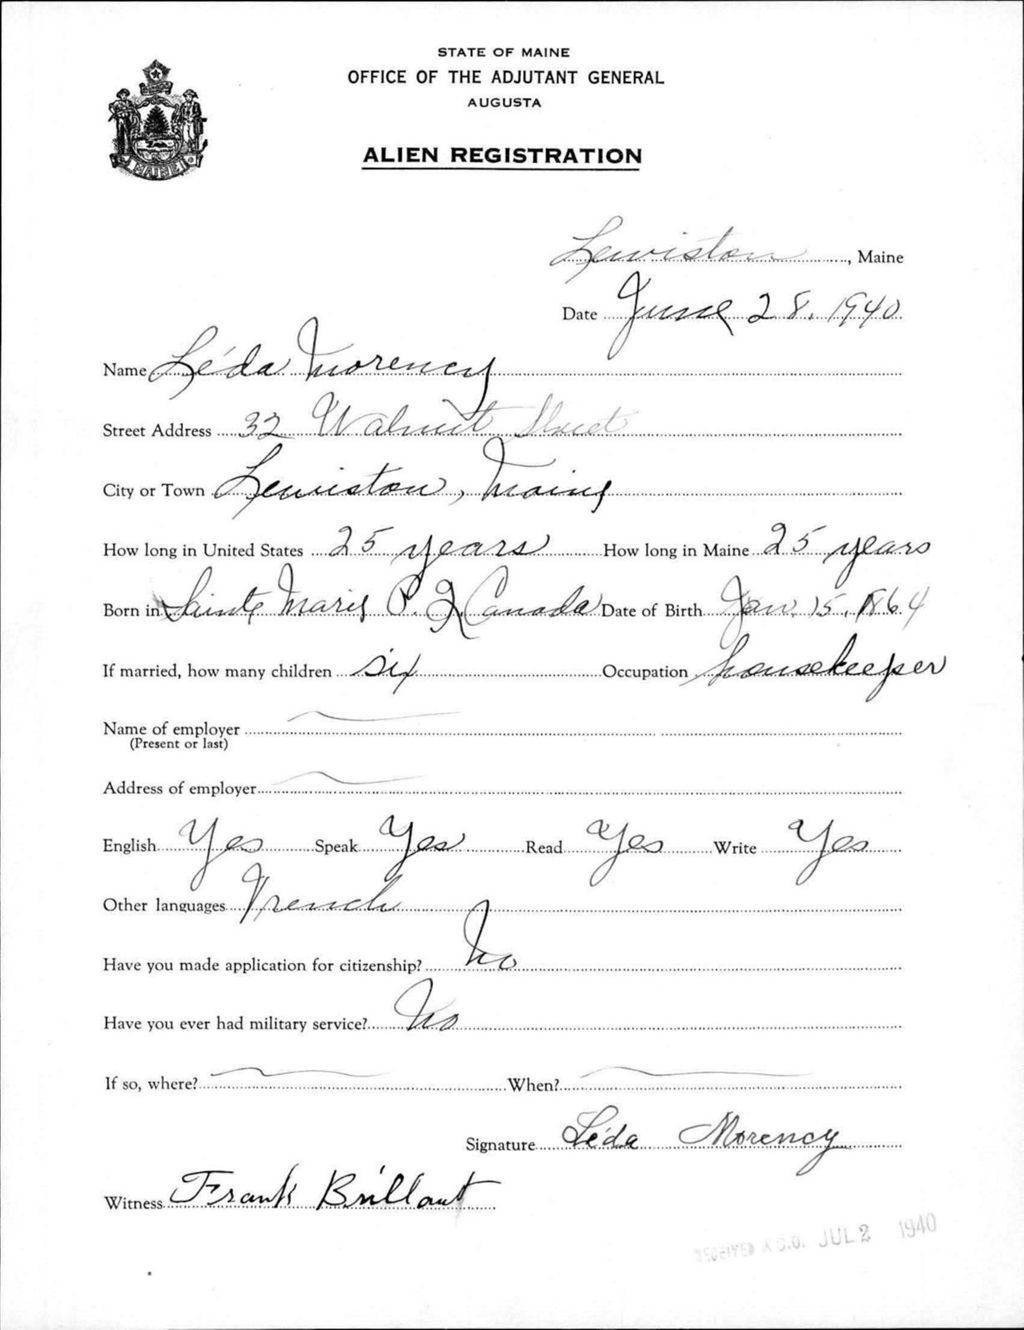 STATE OF MAINE
OFFICE OF THE ADJUTANT GENERAL
AUGUSTA
ALIEN REGISTRATION
MAINE
Lewiston, Maine
Date June 28, 1940
Name Léda Morency
Street Address 32 Walnut Street
City or Town Lewiston, Maine
How long in United States 25 years How long in Maine 25 years
Born in Sainte Marie P. Q Canada Date of Birth Jan. 15, 1864
If married, how many children six Occupation housekeeper
Name of employer
(Present or last)
Address of employer
English Yes Speak Yes Read Yes Write Yes
Other languages French
Have you made application for citizenship? No
Have you ever had military service? No
If so, where? When?
Signature Léda Morency
Witness Frank Brillant
RECEIVED A.G.O. JUL 2 1940